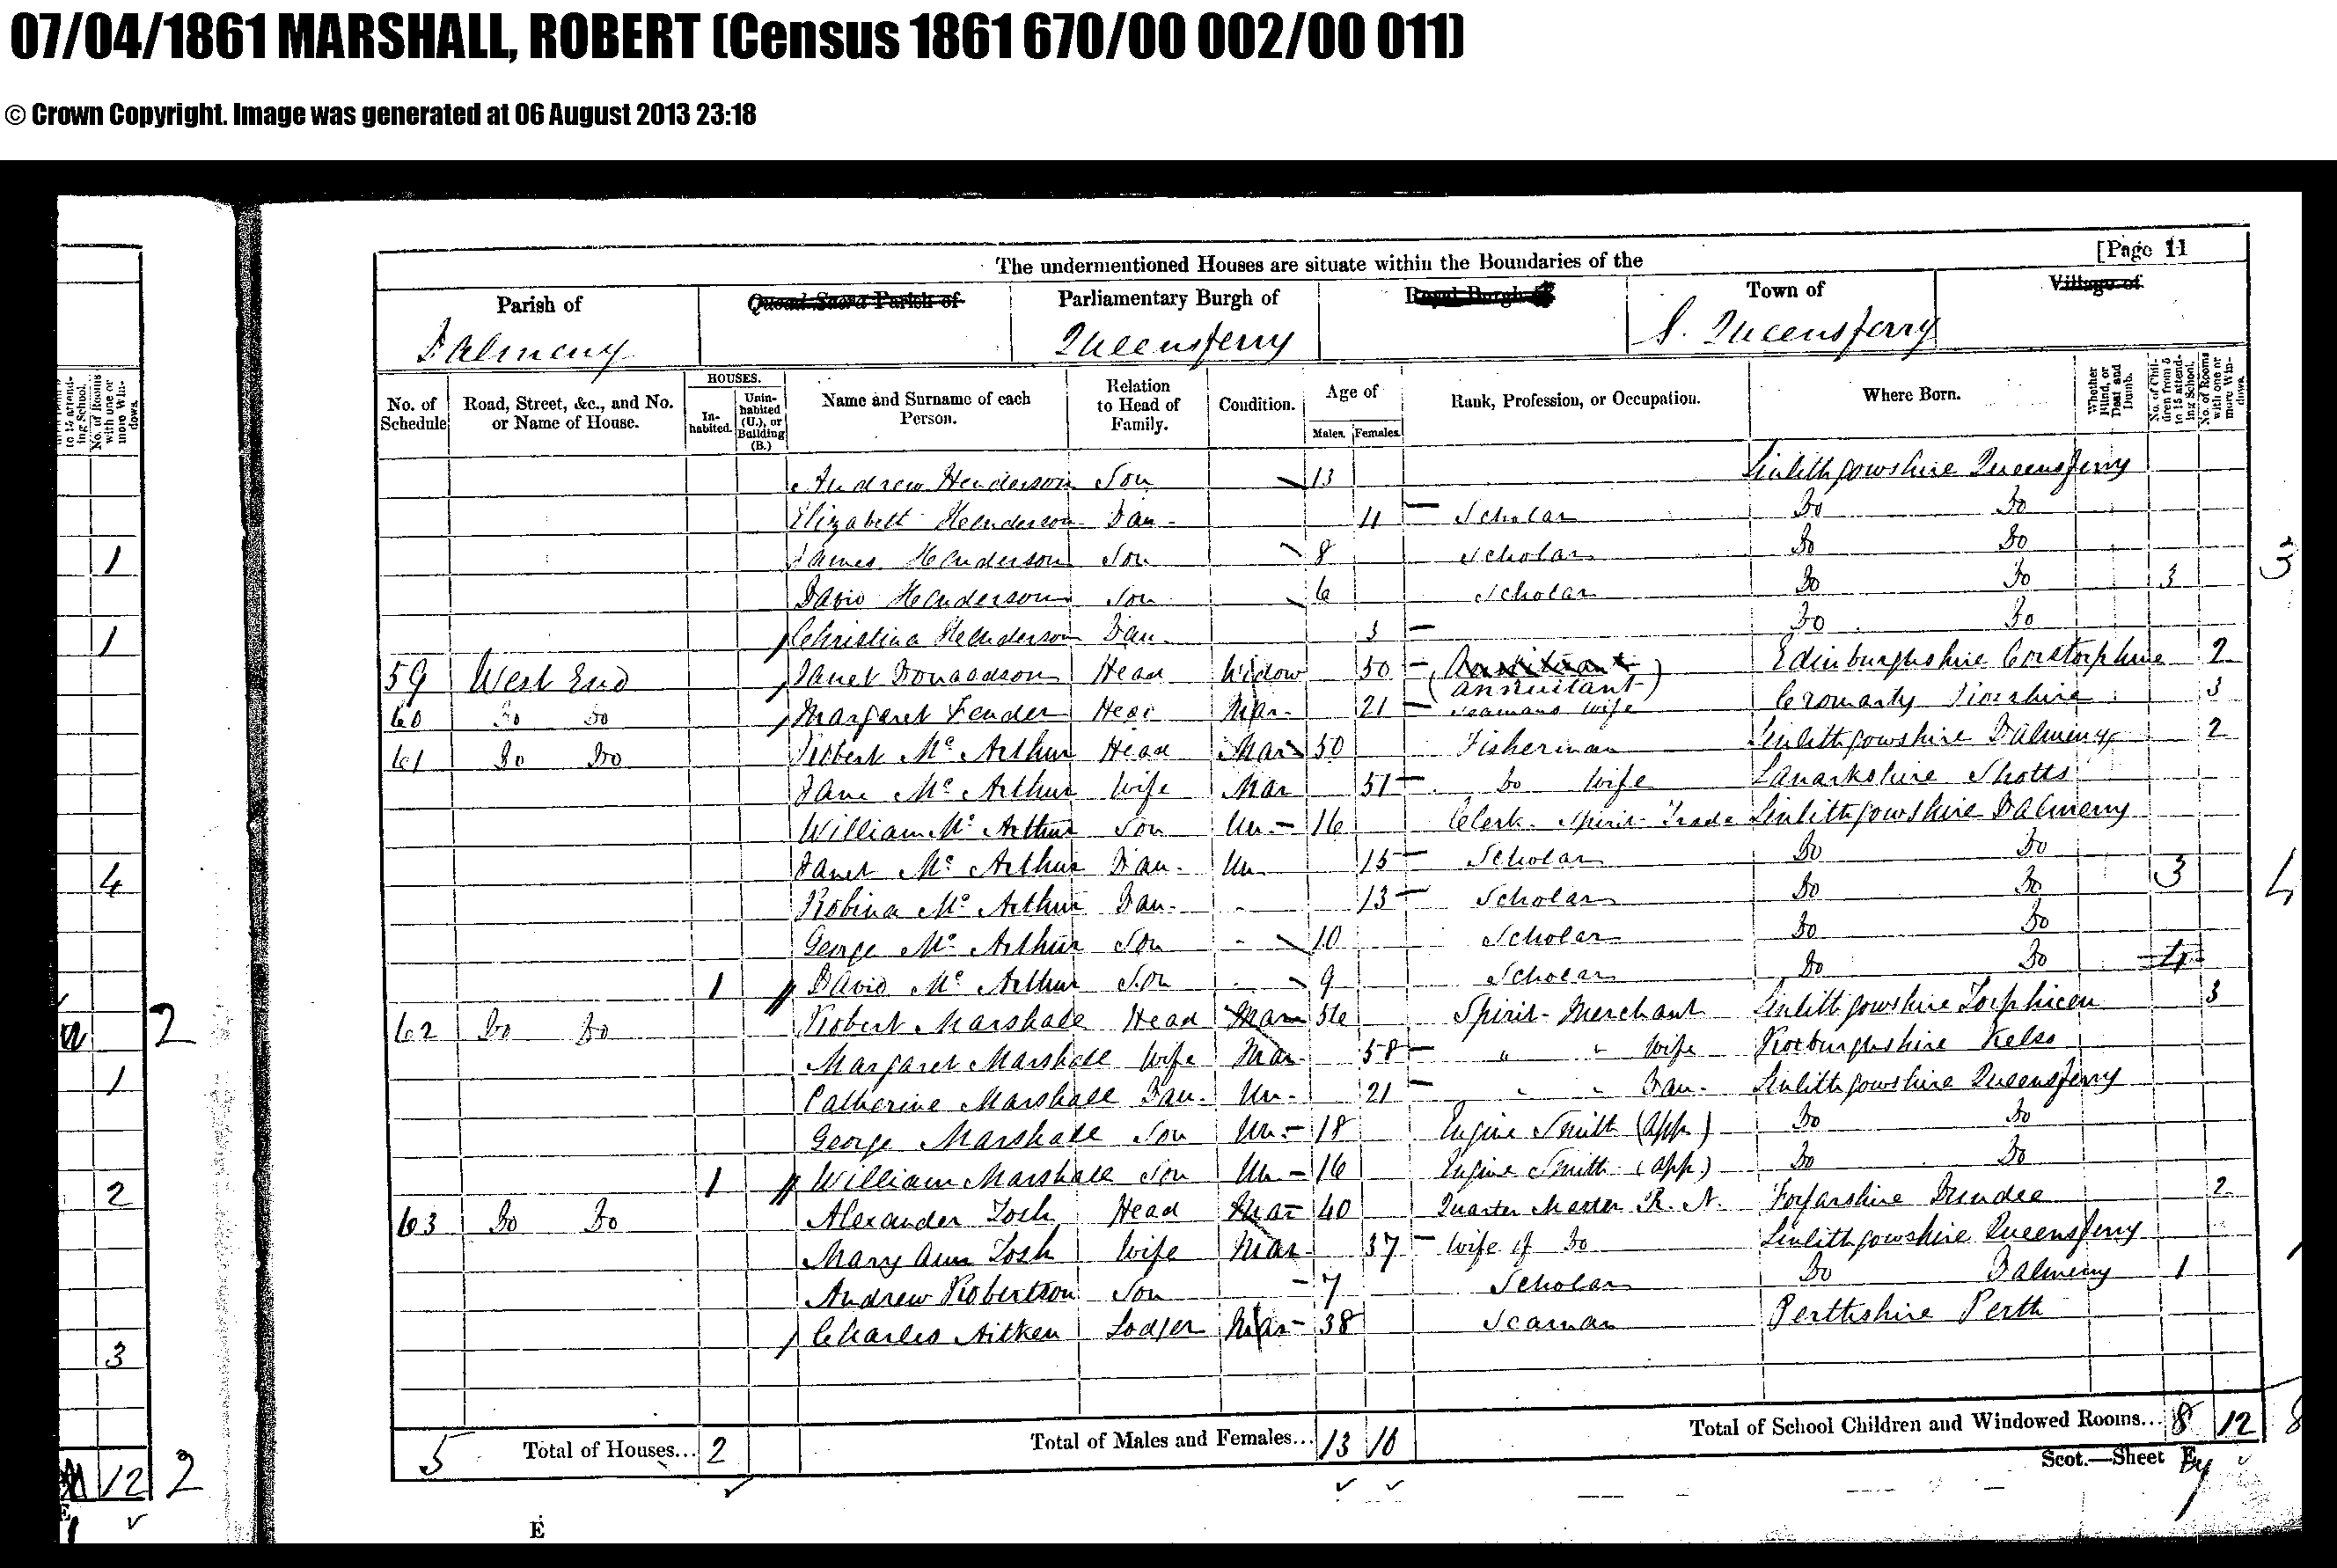 07/04/1861 MARSHALL, ROBERT (Census 1861 670/00 002/00 011)
© Crown Copyright. Image was generated at 06 August 2013 23:18
[Page 11
The undermentioned Houses are situate within the Boundaries of the
Parish of Quoad Sacra Parish of Parliamentary Burgh of Royal Burgh of Town of Village of
Dalmeny Queensferry S. Queensferry
No. of Schedule Road, Street, &c., and No. or Name of House. HOUSES. Inhabited. Uninhabited (U.), or Building (B.) Name and Surname of each Person. Relation to Head of Family. Condition. Age of Males. Females. Rank, Profession, or Occupation. Where Born. Whether Blind, or Deaf and Dumb. No. of Children from 5 to 15 attending School. No. of Rooms with one or more Windows.
Andrew Henderson Son 13 Linlithgowshire Queensferry
Elizabeth Henderson Dau- 11 Scholar Do Do
James Henderson Son 8 Scholar Do Do
David Henderson Son 6 Scholar Do Do 3
Christina Henderson Dau- 3 Do Do
59 West End Janet Donaldson Head Widow 50 (annuitant) Edinburghshire Corstorphine 2
60 Do Do Margaret Fender Head Mar- 21 Seamans wife Cromarty 3
61 Do Do Robert Mc Arthur Head Mar 50 Fisherman Linlithgowshire Dalmeny 2
Jane Mc Arthur Wife Mar 51 Do Wife Lanarkshire Shotts
William Mc Arthur Son Un- 16 Clerk- Spirit- Trade Linlithgowshire Dalmeny
Janet Mc Arthur Dau- Un 15 Scholar Do Do
Robina Mc Arthur Dau- 13 Scholar Do Do 3
George Mc Arthur Son 10 Scholar Do Do
1 David Mc Arthur Son 9 Scholar Do Do 4
62 Do Do Robert Marshall Head Mar 56 Spirit- Merchant Linlithgowshire Torphicen 3
Margaret Marshall Wife Mar- 58 " " Wife Roxburghshire Kelso
Catherine Marshall Dau- Un- 21 " " Dau- Linlithgowshire Queensferry
George Marshall Son Un- 18 Engine Smith (App) Do Do
1 William Marshall Son Un- 16 Engine Smith (App) Do Do
63 Do Do Alexander Tosh Head Mar- 40 Quarter Master R. N. Forfarshire Dundee 2
Mary Ann Tosh Wife Mar- 37 Wife of Do Linlithgowshire Queensferry
Andrew Robertson Son 7 Scholar Do Dalmeny 1
Charles Aitken Lodger Mar- 38 Seaman Perthshire Perth
5 Total of Houses... 2 Total of Males and Females... 13 10 Total of School Children and Windowed Rooms... 8 12
Scot.—Sheet E
E